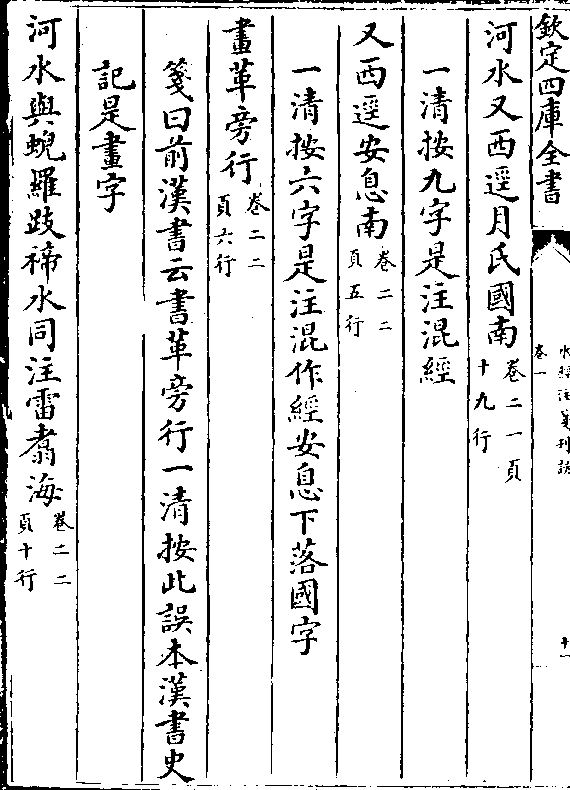 欽定四庫全書
水經注箋刊誤
卷一
十一
河水又西逕月氏國南卷二一頁
十九行
一清按九字是注混經
又西逕安息南卷二二
頁五行
一清按六字是注混作經安息下落國字
畫革旁行卷二二
頁六行
箋曰前漢書云書革旁行一清按此誤本漢書史
記是畫字
河水與蜺羅跂禘水同注雷翥海卷二二
頁十行